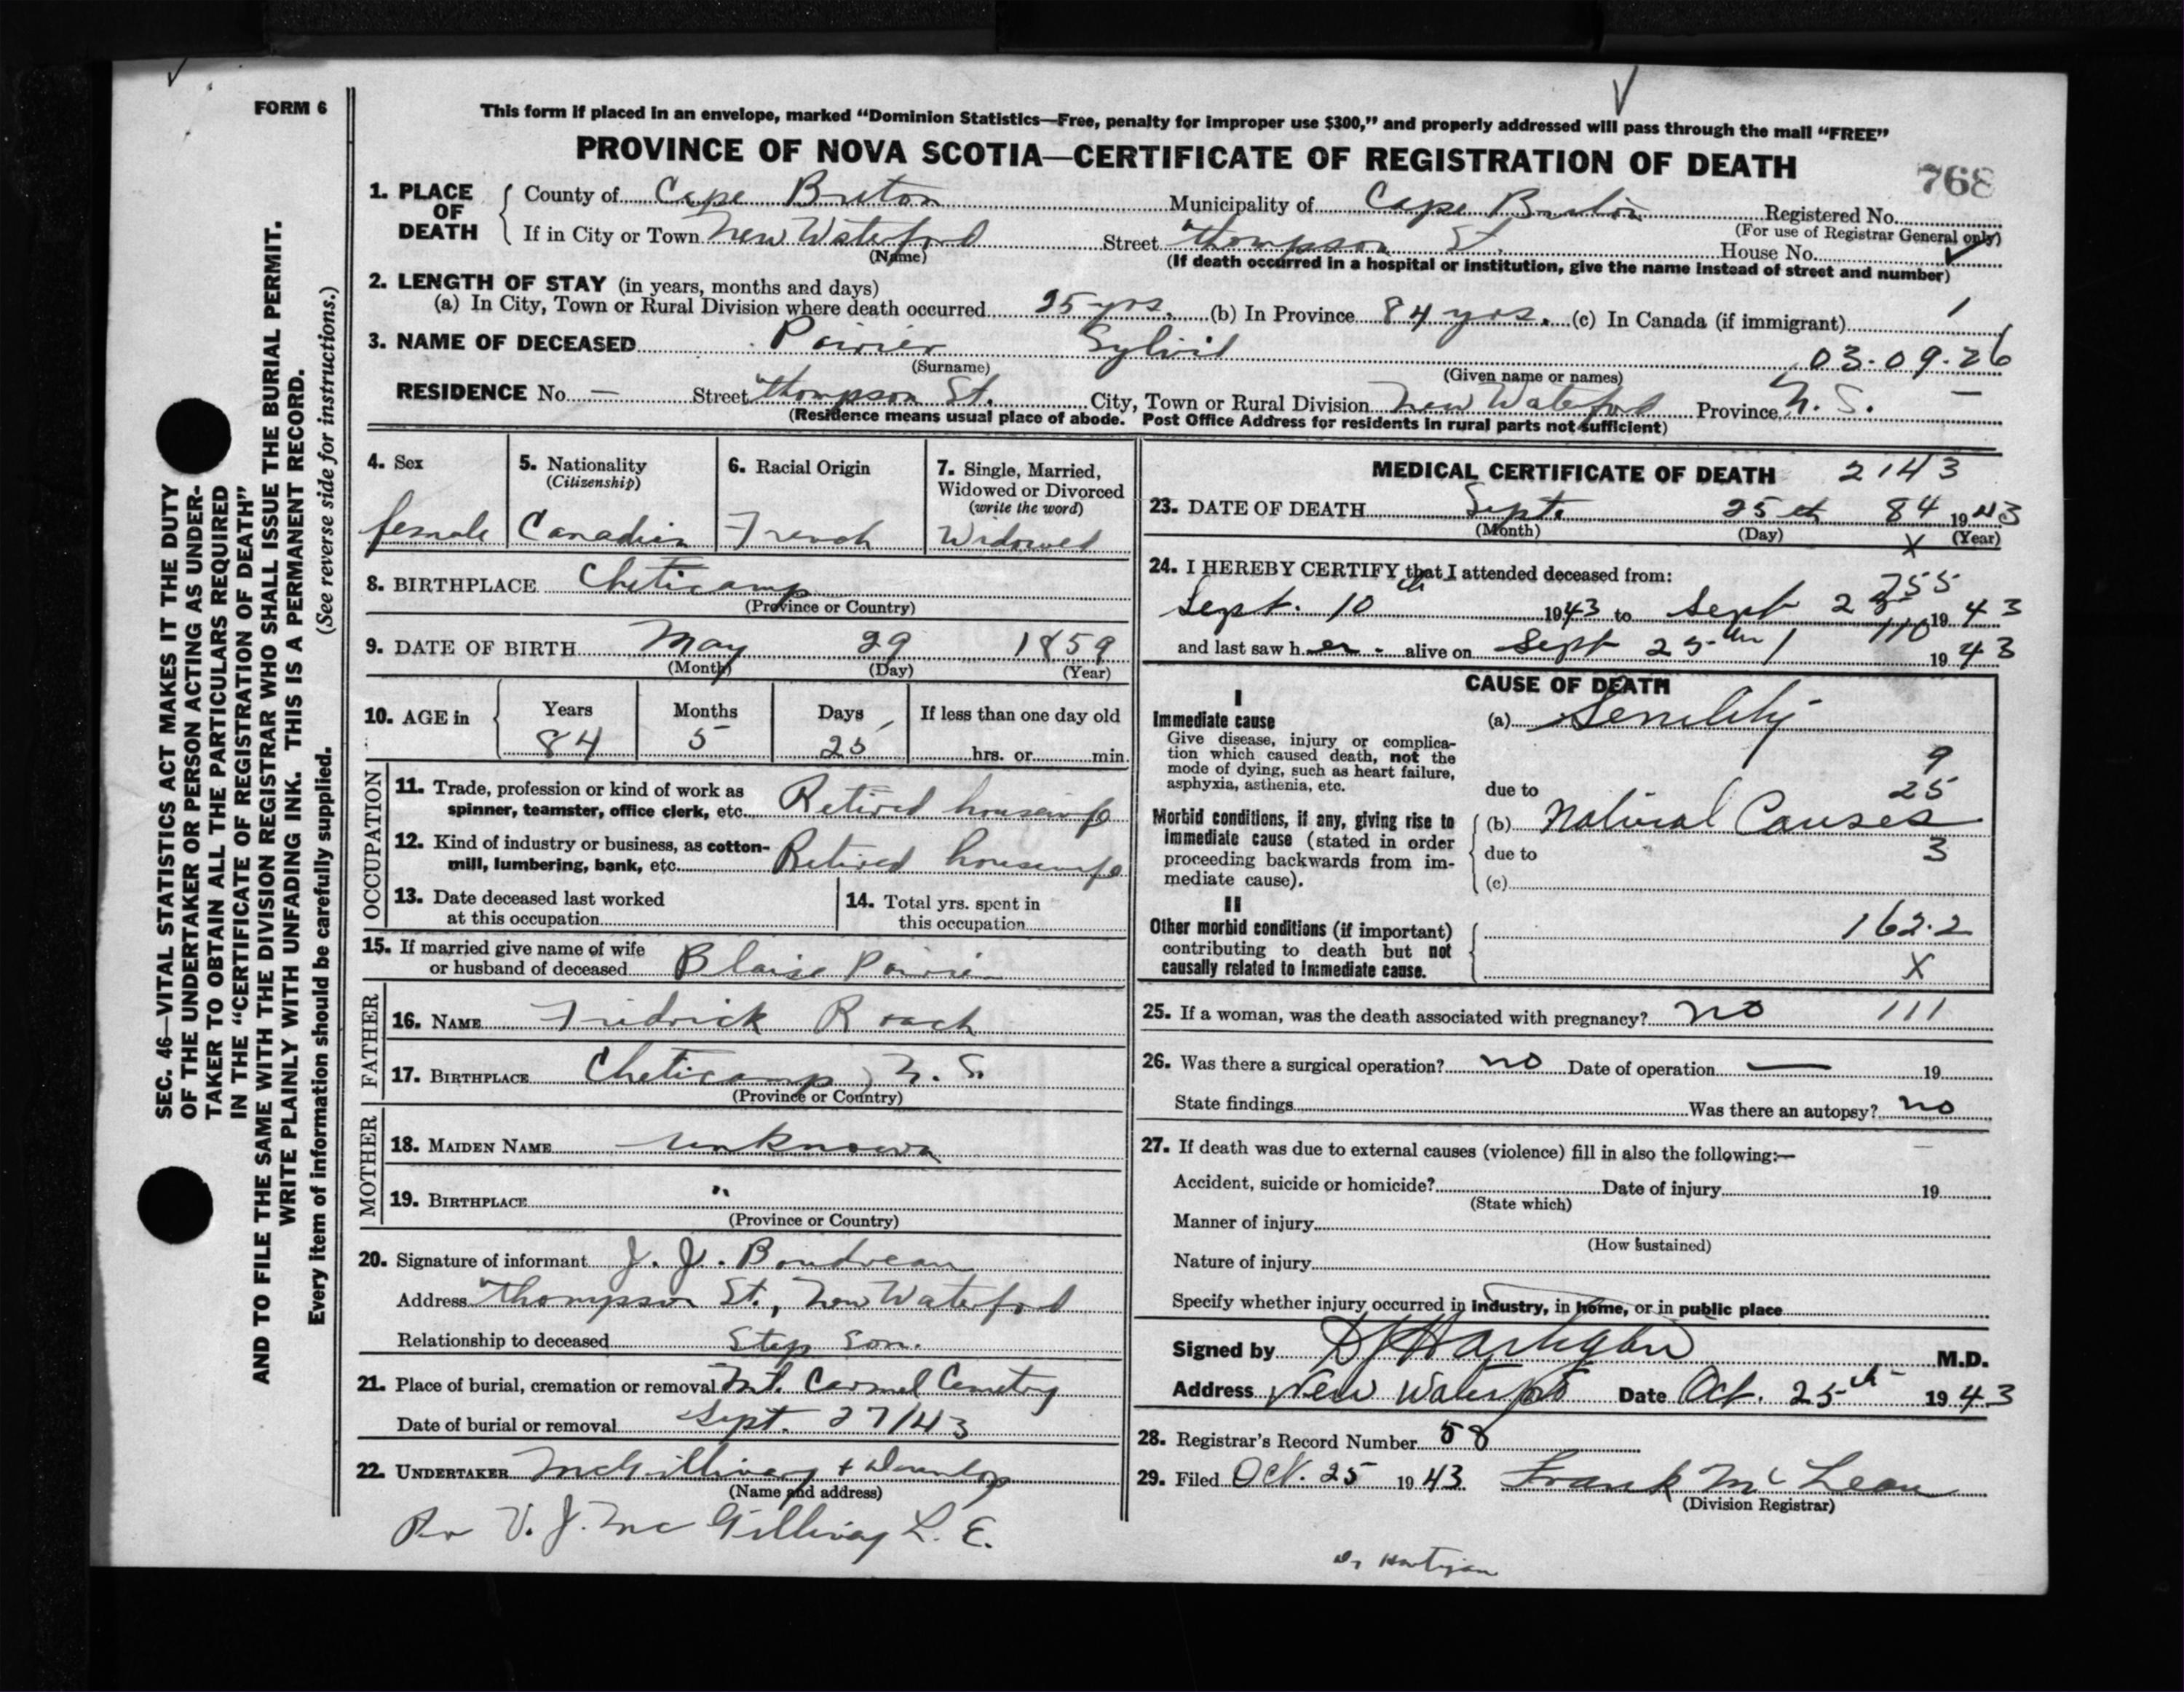 FORM 6
This form if placed in an envelope, marked “Dominion Statistics—Free, penalty for improper use $300,” and properly addressed will pass through the mail “FREE”
PROVINCE OF NOVA SCOTIA—CERTIFICATE OF REGISTRATION OF DEATH
768
1. PLACE OF DEATH
County of Cape Breton Municipality of Cape Breton Registered No.
(For use of Registrar General only)
If in City or Town New Waterford Street Thompson St. House No.
(Name)
(If death occurred in a hospital or institution, give the name instead of street and number)
2. LENGTH OF STAY (in years, months and days)
(a) In City, Town or Rural Division where death occurred 25 yrs. (b) In Province 84 yrs. (c) In Canada (if immigrant)
3. NAME OF DECEASED Poirier 03-09-26
(Surname) (Given name or names)
RESIDENCE No. — Street Thompson St. City, Town or Rural Division New Waterford Province N. S.
(Residence means usual place of abode. Post Office Address for residents in rural parts not sufficient)
4. Sex
female
5. Nationality
(Citizenship)
Canadian
6. Racial Origin
French
7. Single, Married, Widowed or Divorced
(write the word)
Widowed
8. BIRTHPLACE Cheticamp
(Province or Country)
9. DATE OF BIRTH May 29 1859
(Month) (Day) (Year)
10. AGE in Years Months Days If less than one day old
84 5 25 hrs. or min.
OCCUPATION
11. Trade, profession or kind of work as
spinner, teamster, office clerk, etc. Retired housewife
12. Kind of industry or business, as cotton-
mill, lumbering, bank, etc. Retired housewife
13. Date deceased last worked
at this occupation
14. Total yrs. spent in
this occupation
15. If married give name of wife
or husband of deceased Blaise Poirier
FATHER
16. NAME Fredrick Roach
17. BIRTHPLACE Cheticamp, N. S.
(Province or Country)
MOTHER
18. MAIDEN NAME unknown
19. BIRTHPLACE "
(Province or Country)
20. Signature of informant J. J. Boudreau
Address Thompson St., New Waterford
Relationship to deceased Step Son.
21. Place of burial, cremation or removal Mt. Carmel Cemetery
Date of burial or removal Sept. 27/43
22. UNDERTAKER McGillivary + Dunlop
(Name and address)
Per V. J. McGillivray L. E.
MEDICAL CERTIFICATE OF DEATH 2143
23. DATE OF DEATH Sept. 25th 84 1943
(Month) (Day) X (Year)
24. I HEREBY CERTIFY that I attended deceased from:
755
Sept. 10th 1943 to Sept 1943
110
and last saw her alive on Sept 25th 1943
CAUSE OF DEATH
I
Immediate cause
Give disease, injury or complica-
tion which caused death, not the
mode of dying, such as heart failure,
asphyxia, asthenia, etc.
(a) Senility
9
due to 25
Morbid conditions, if any, giving rise to
immediate cause (stated in order
proceeding backwards from im-
mediate cause).
(b) Natural Causes
due to 3
(c)
II
Other morbid conditions (if important)
contributing to death but not
causally related to immediate cause.
162.2
X
25. If a woman, was the death associated with pregnancy? no 111
26. Was there a surgical operation? no Date of operation — 19
State findings Was there an autopsy? no
27. If death was due to external causes (violence) fill in also the following:—
Accident, suicide or homicide? Date of injury 19
(State which)
Manner of injury
(How sustained)
Nature of injury
Specify whether injury occurred in industry, in home, or in public place
Signed by Hartigan M.D.
Address New Waterford Date Oct. 25th 1943
28. Registrar's Record Number 58
29. Filed Oct. 25 1943 Frank McLean
(Division Registrar)
Dr Hartigan
SEC. 46—VITAL STATISTICS ACT MAKES IT THE DUTY
OF THE UNDERTAKER OR PERSON ACTING AS UNDER-
TAKER TO OBTAIN ALL THE PARTICULARS REQUIRED
IN THE “CERTIFICATE OF REGISTRATION OF DEATH”
AND TO FILE THE SAME WITH THE DIVISION REGISTRAR WHO SHALL ISSUE THE BURIAL PERMIT.
WRITE PLAINLY WITH UNFADING INK. THIS IS A PERMANENT RECORD.
Every item of information should be carefully supplied. (See reverse side for instructions.)